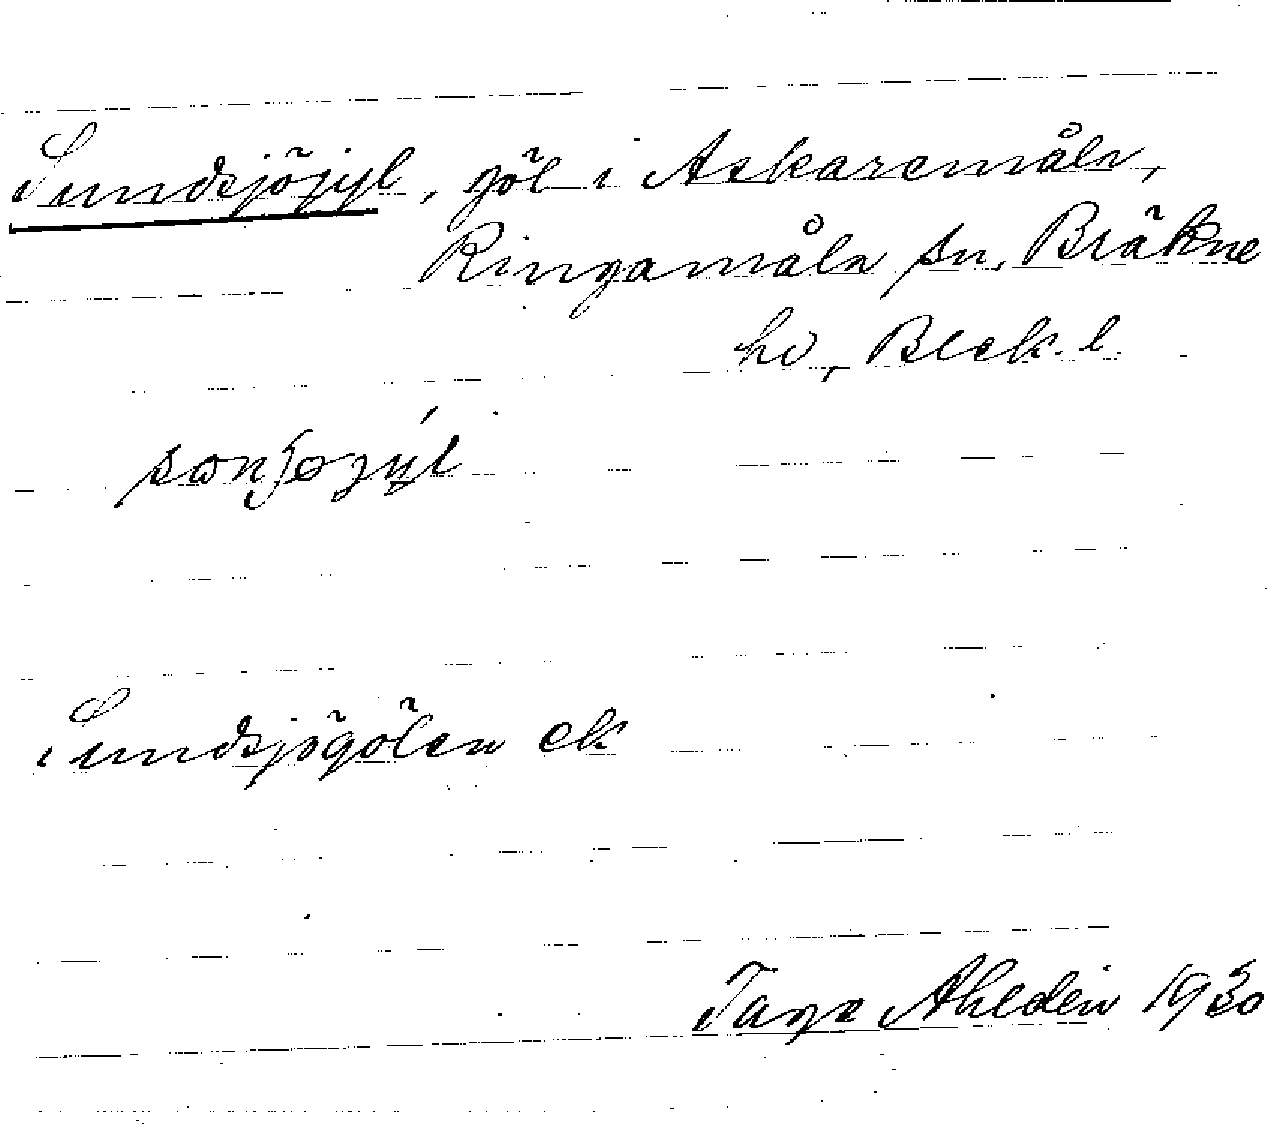 Sundsjöjyl, göl i Askaremåla,
Ringamåla sn, Bräkne
hd, Blek. l
Sundsjögölen ek
Tage Ahldén 1930